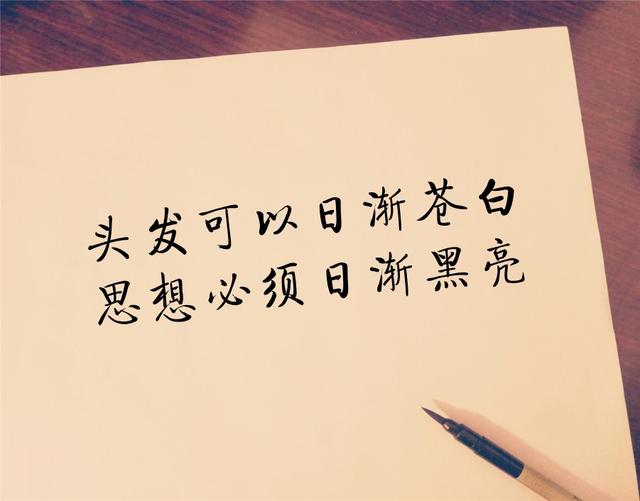 头发可以日渐苍白
思想必须日渐黑亮